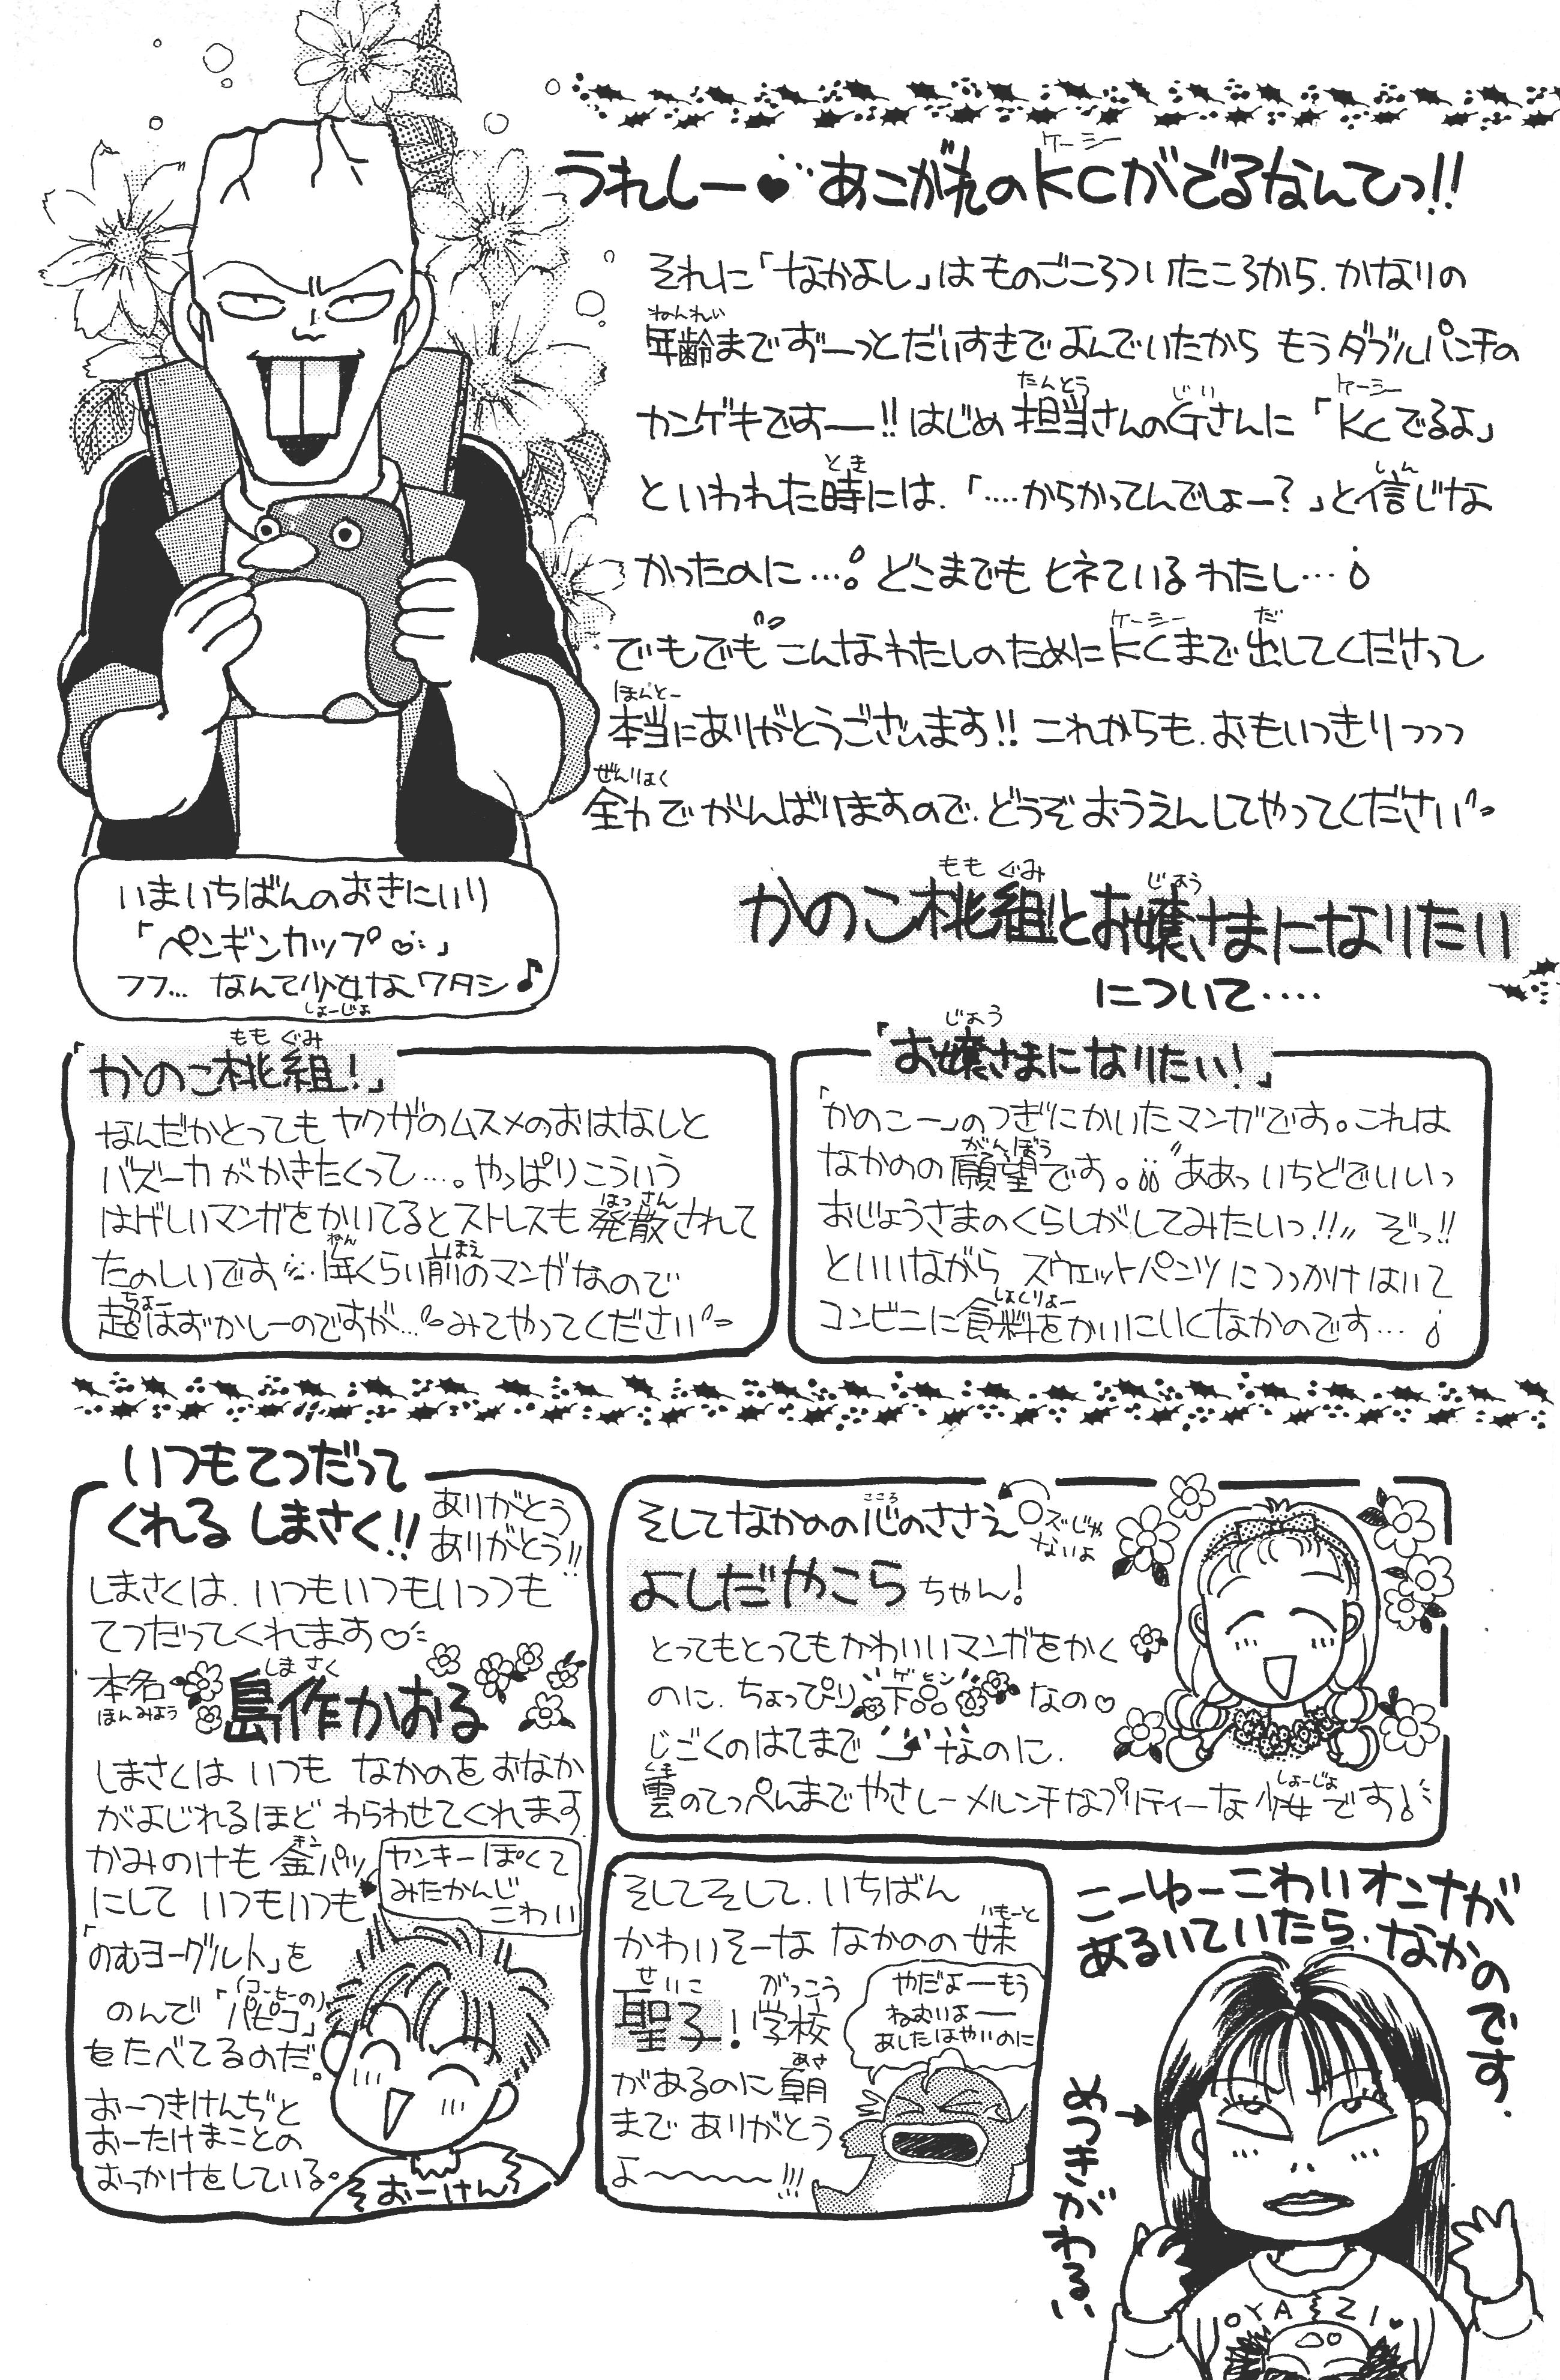 うれしー♥あこがれのKCがでるなんてっ!!
ケーシー
それに「なかよし」はものごころついたころから、かなりの
年齢までずーっとだいすきでよんでいたから もうダブルパンチの
ねんれい
カンゲキですー!!はじめ担当さんのGさんに「KCでるよ」
たんとう じい ケーシー
といわれた時には、「‥‥からかってんでしょー?」と信じな
とき しん
かったのに…。どこまでもヒネているわたし…
でもでもこんなわたしのためにKCまで出してくださって
ケーシー だ
本当にありがとうございます!!これからも、おもいっきりっっっ
ほんとー
全力でがんばりますので、どうぞおうえんしてやってください
ぜんりょく
いまいちばんのおきにいり
「ペンギンカップ♡」
フフ… なんて少女なワタシ♪
しょーじょ
かのこ桃組とお嬢さまになりたい
もも ぐみ じょう
について‥‥
「かのこ桃組!」
もも ぐみ
なんだかとってもヤクザのムスメのおはなしと
バズーカがかきたくって…。やっぱりこういう
はげしいマンガをかいてるとストレスも発散されて
はっさん
たのしいです 1年くらい前のマンガなので
ねん まえ
超はずかしーのですが…みてやってください
ちょー
「お嬢さまになりたい!」
じょう
「かのこー」のつぎにかいたマンガです。これは
なかのの願望です。"ああっいちどでいいっ
がんぼう
おじょうさまのくらしがしてみたいっ!!" ぞっ!!
といいながら スウェットパンツにつっかけはいて
コンビニに食料をかいにいくなかのです…
しょくりょー
いつもてつだって
くれる しまさく!!
ありがとう
ありがとう!!
しまさくは、いつもいつもいっつも
てつだってくれます♡
本名
ほんみょう
島作かおる
しま さく
しまさくは いつも なかのをおなか
がよじれるほど わらわせてくれます
かみのけも 金パツ
キン
にして いつもいつも
ヤンキーぽくて
みたかんじ
こわい
「のむヨーグルト」を
のんで「パピコ」
(コーヒーの)
をたべてるのだ。
おーつきけんぢと
おーたけまことの
おっかけをしている。
おーけん
そしてなかのの心のささえ
こころ
○ズじゃ
ないよ
よしだやこらちゃん!
とってもとってもかわいいマンガをかく
のに、ちょっぴり下品なの♡
ゲヒン
じごくのはてまでなのに、
雲のてっぺんまでやさしーメルンチなプリティーな少女です
くも しょーじょ
そしてそして、いちばん
かわいそーな なかのの妹
いもーと
聖子!学校
せいこ がっこう
があるのに朝
あさ
まで ありがとう
よ〜〜〜〜!!!
やだよーもう
ねむいよー
あしたはやいのに
こーゆーこわいオンナが
あるいていたら、なかのです.
めつきがわるい
OYAZI